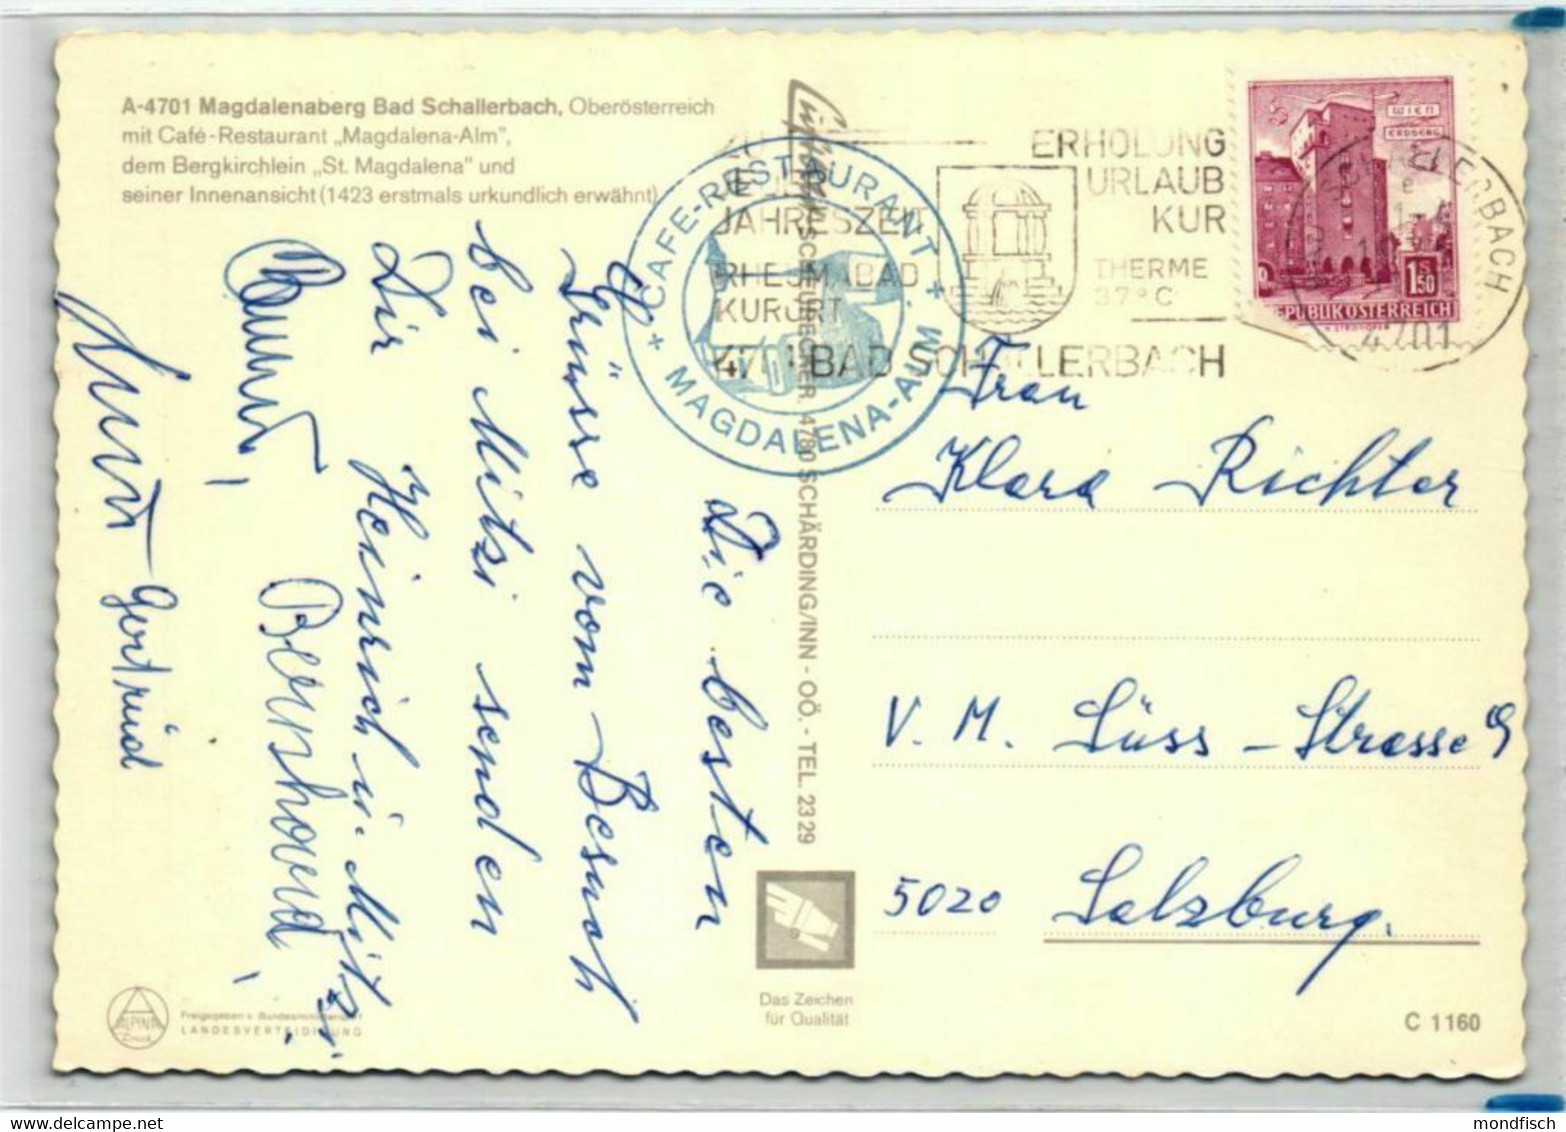 A-4701 Magdalenaberg Bad Schallerbach, Oberösterreich
mit Café-Restaurant „Magdalena-Alm",
dem Bergkirchlein „St. Magdalena" und
seiner Innenansicht (1423 erstmals urkundlich erwähnt)
JAHRESZEIT
RHEUMABAD
KURORT
4701 BAD SCHALLERBACH
ERHOLUNG
URLAUB
KUR
THERME
37° C
+ CAFE-RESTAURANT +
MAGDALENA-ALM
WIEN
ERDBERG
1.50
REPUBLIK ÖSTERREICH
4701
4780 SCHÄRDING/INN - OÖ. - TEL. 23 29
Frau
Klara Richter
V. M. Süss-Strasse 9
5020 Salzburg.
Die besten
Grüsse vom Besuch
bei Mitzi senden
Dir Heinrich u. Mitzi
Gertrud
Das Zeichen
für Qualität
ALPINA
Druck
Freigegeben v. Bundesministerium f.
LANDESVERTEIDIGUNG
C 1160
mondfisch